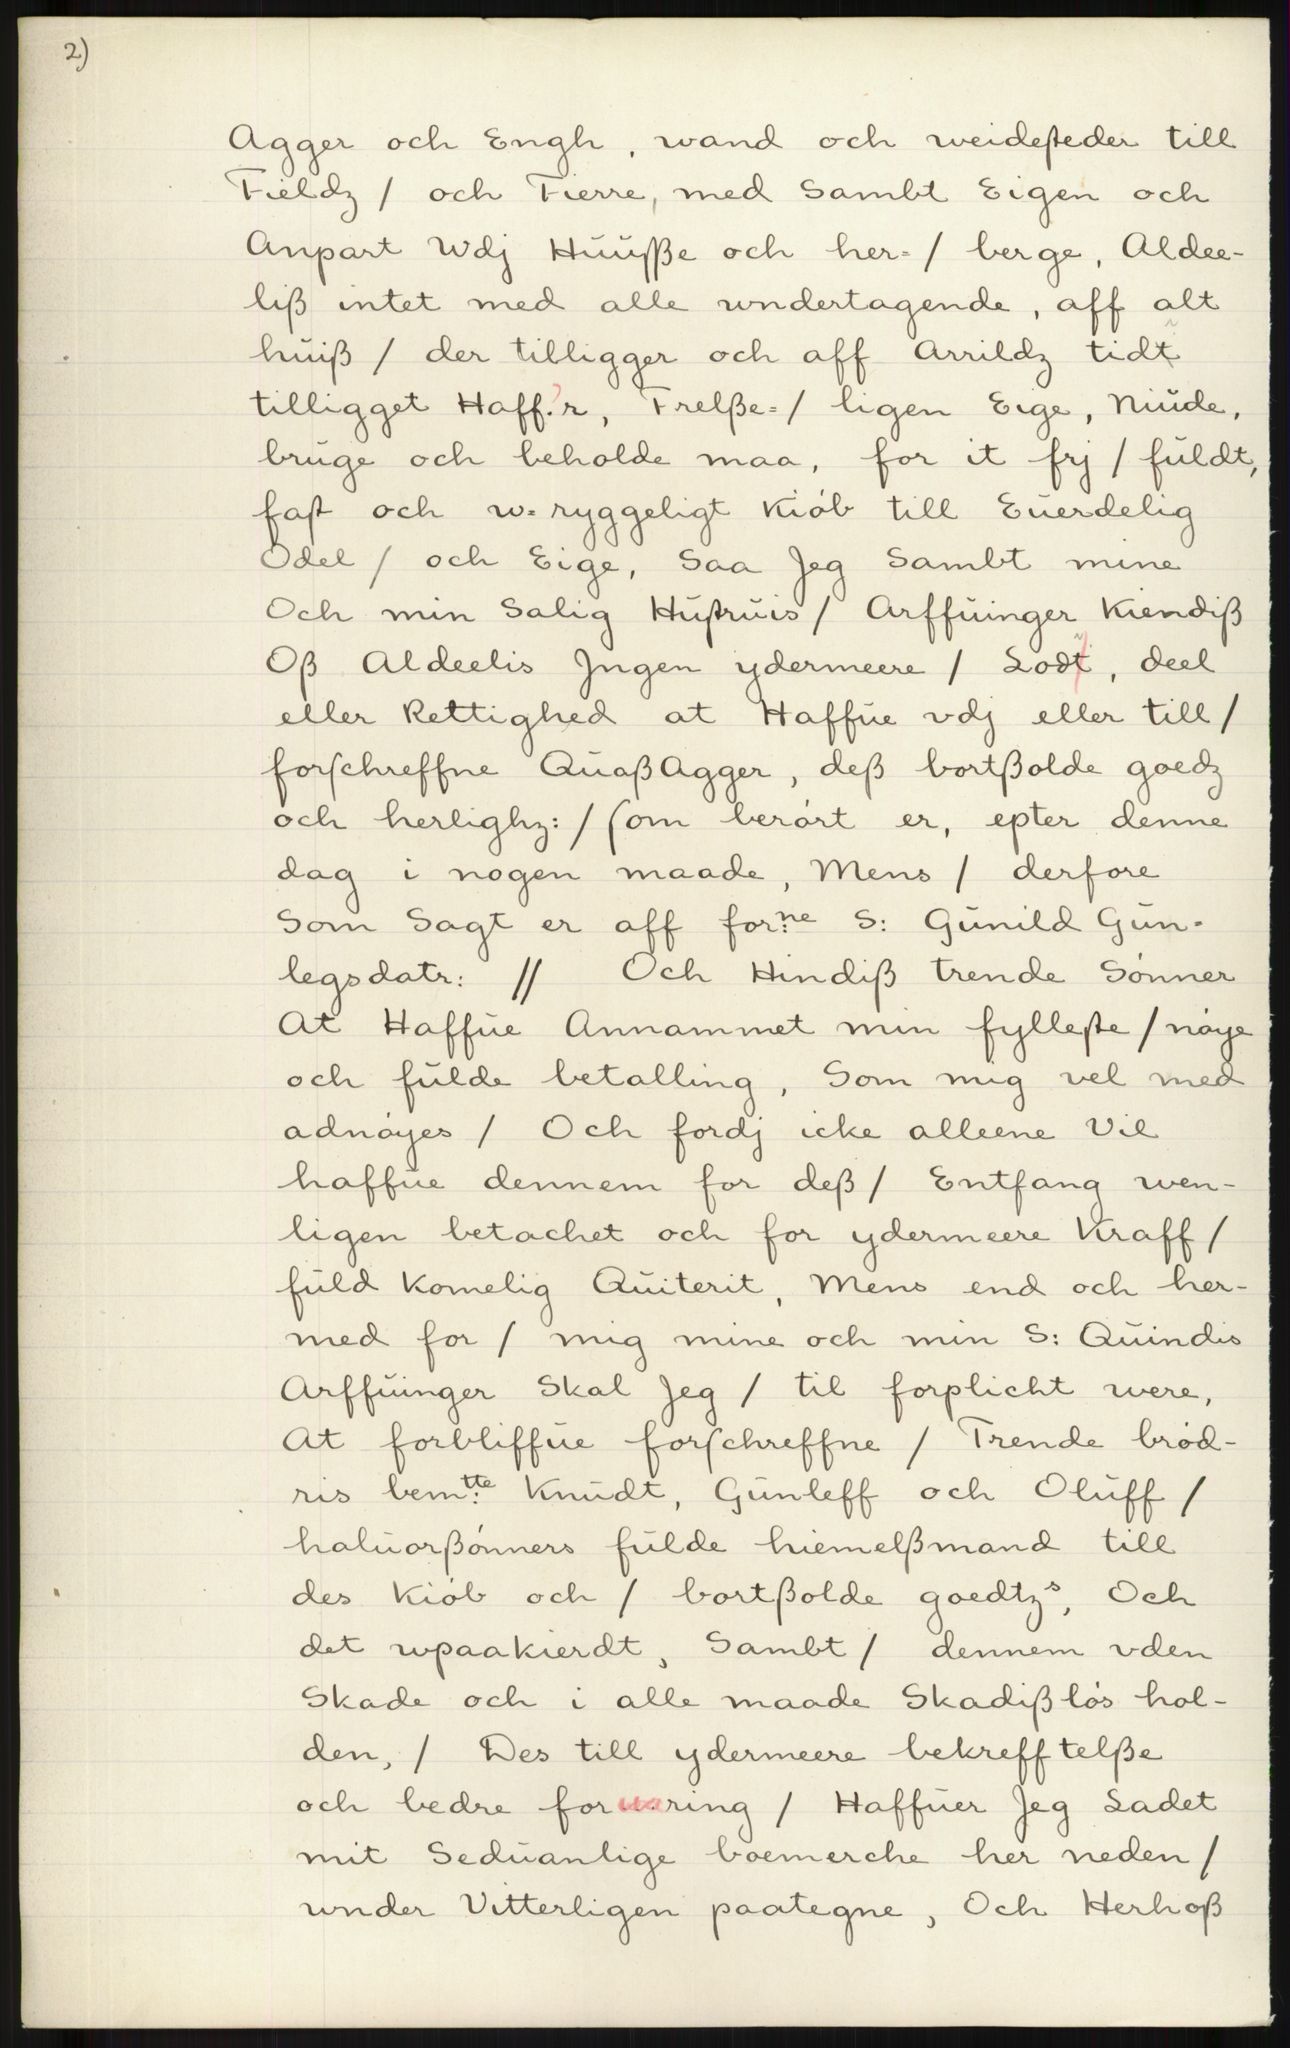 2)
Agger och Engh, wand och weidesteder till
Fieldz / och Fierre, med Sambt Eigen och
Anpart Wdj Huusße och her= / berge, Aldee-
liß intet med alle wndertagende, aff alt
huiß / der tilligger och aff Arrildz tidt
tilligget Haff.r, Frelße= / ligen Eige, Niude,
bruge och beholde maa, for it frj / fuldt,
fast och w=ryggeligt Kiób till Euerdelig
Odel / och Eige, Saa Jeg Sambt mine
Och min Salig Hustruis / Arffuinger Kiendiß
Oß Aldeelis Jngen ydermeere / Lodt, deel
eller Rettighed at Haffue vdj eller till /
forschreffne QuaßAgger, deß bortßolde goedz
och herlighz: / som berórt er, epter denne
dag i nogen maade, Mens / derfore
Som Sagt er aff for:ne S: Gunild Gun-
legsdatr: // Och Hindiß trende Sónner
At Haffue Annammet min fylleste / nóye
och fulde betalling, Som mig vel med
adnóyes / Och fordj icke alleene Vil
haffue dennem for deß / Entfang wen-
ligen betachet och for ydermeere Kraff /
fuld Komelig Quiterit, Mens end och her-
med for / mig mine och min S: Quindis
Arffuinger Skal Jeg / til forplicht were,
At forbliffue forschreffne / Trende bród-
ris bem:tte Knudt, Gunleff och Oluff /
haluorßónners fulde hiemelßmand till
des Kiób och / bortßolde goedtzs, Och
det wpaakierdt, Sambt / dennem vden
Skade och i alle maade Skadißlós hol-
den, / Des till ydermeere bekrefftelße
och bedre forwaring / Haffuer Jeg Ladet
mit Seduanlige boemerche her neden /
wnder Vitterligen paategne, Och Herhoß